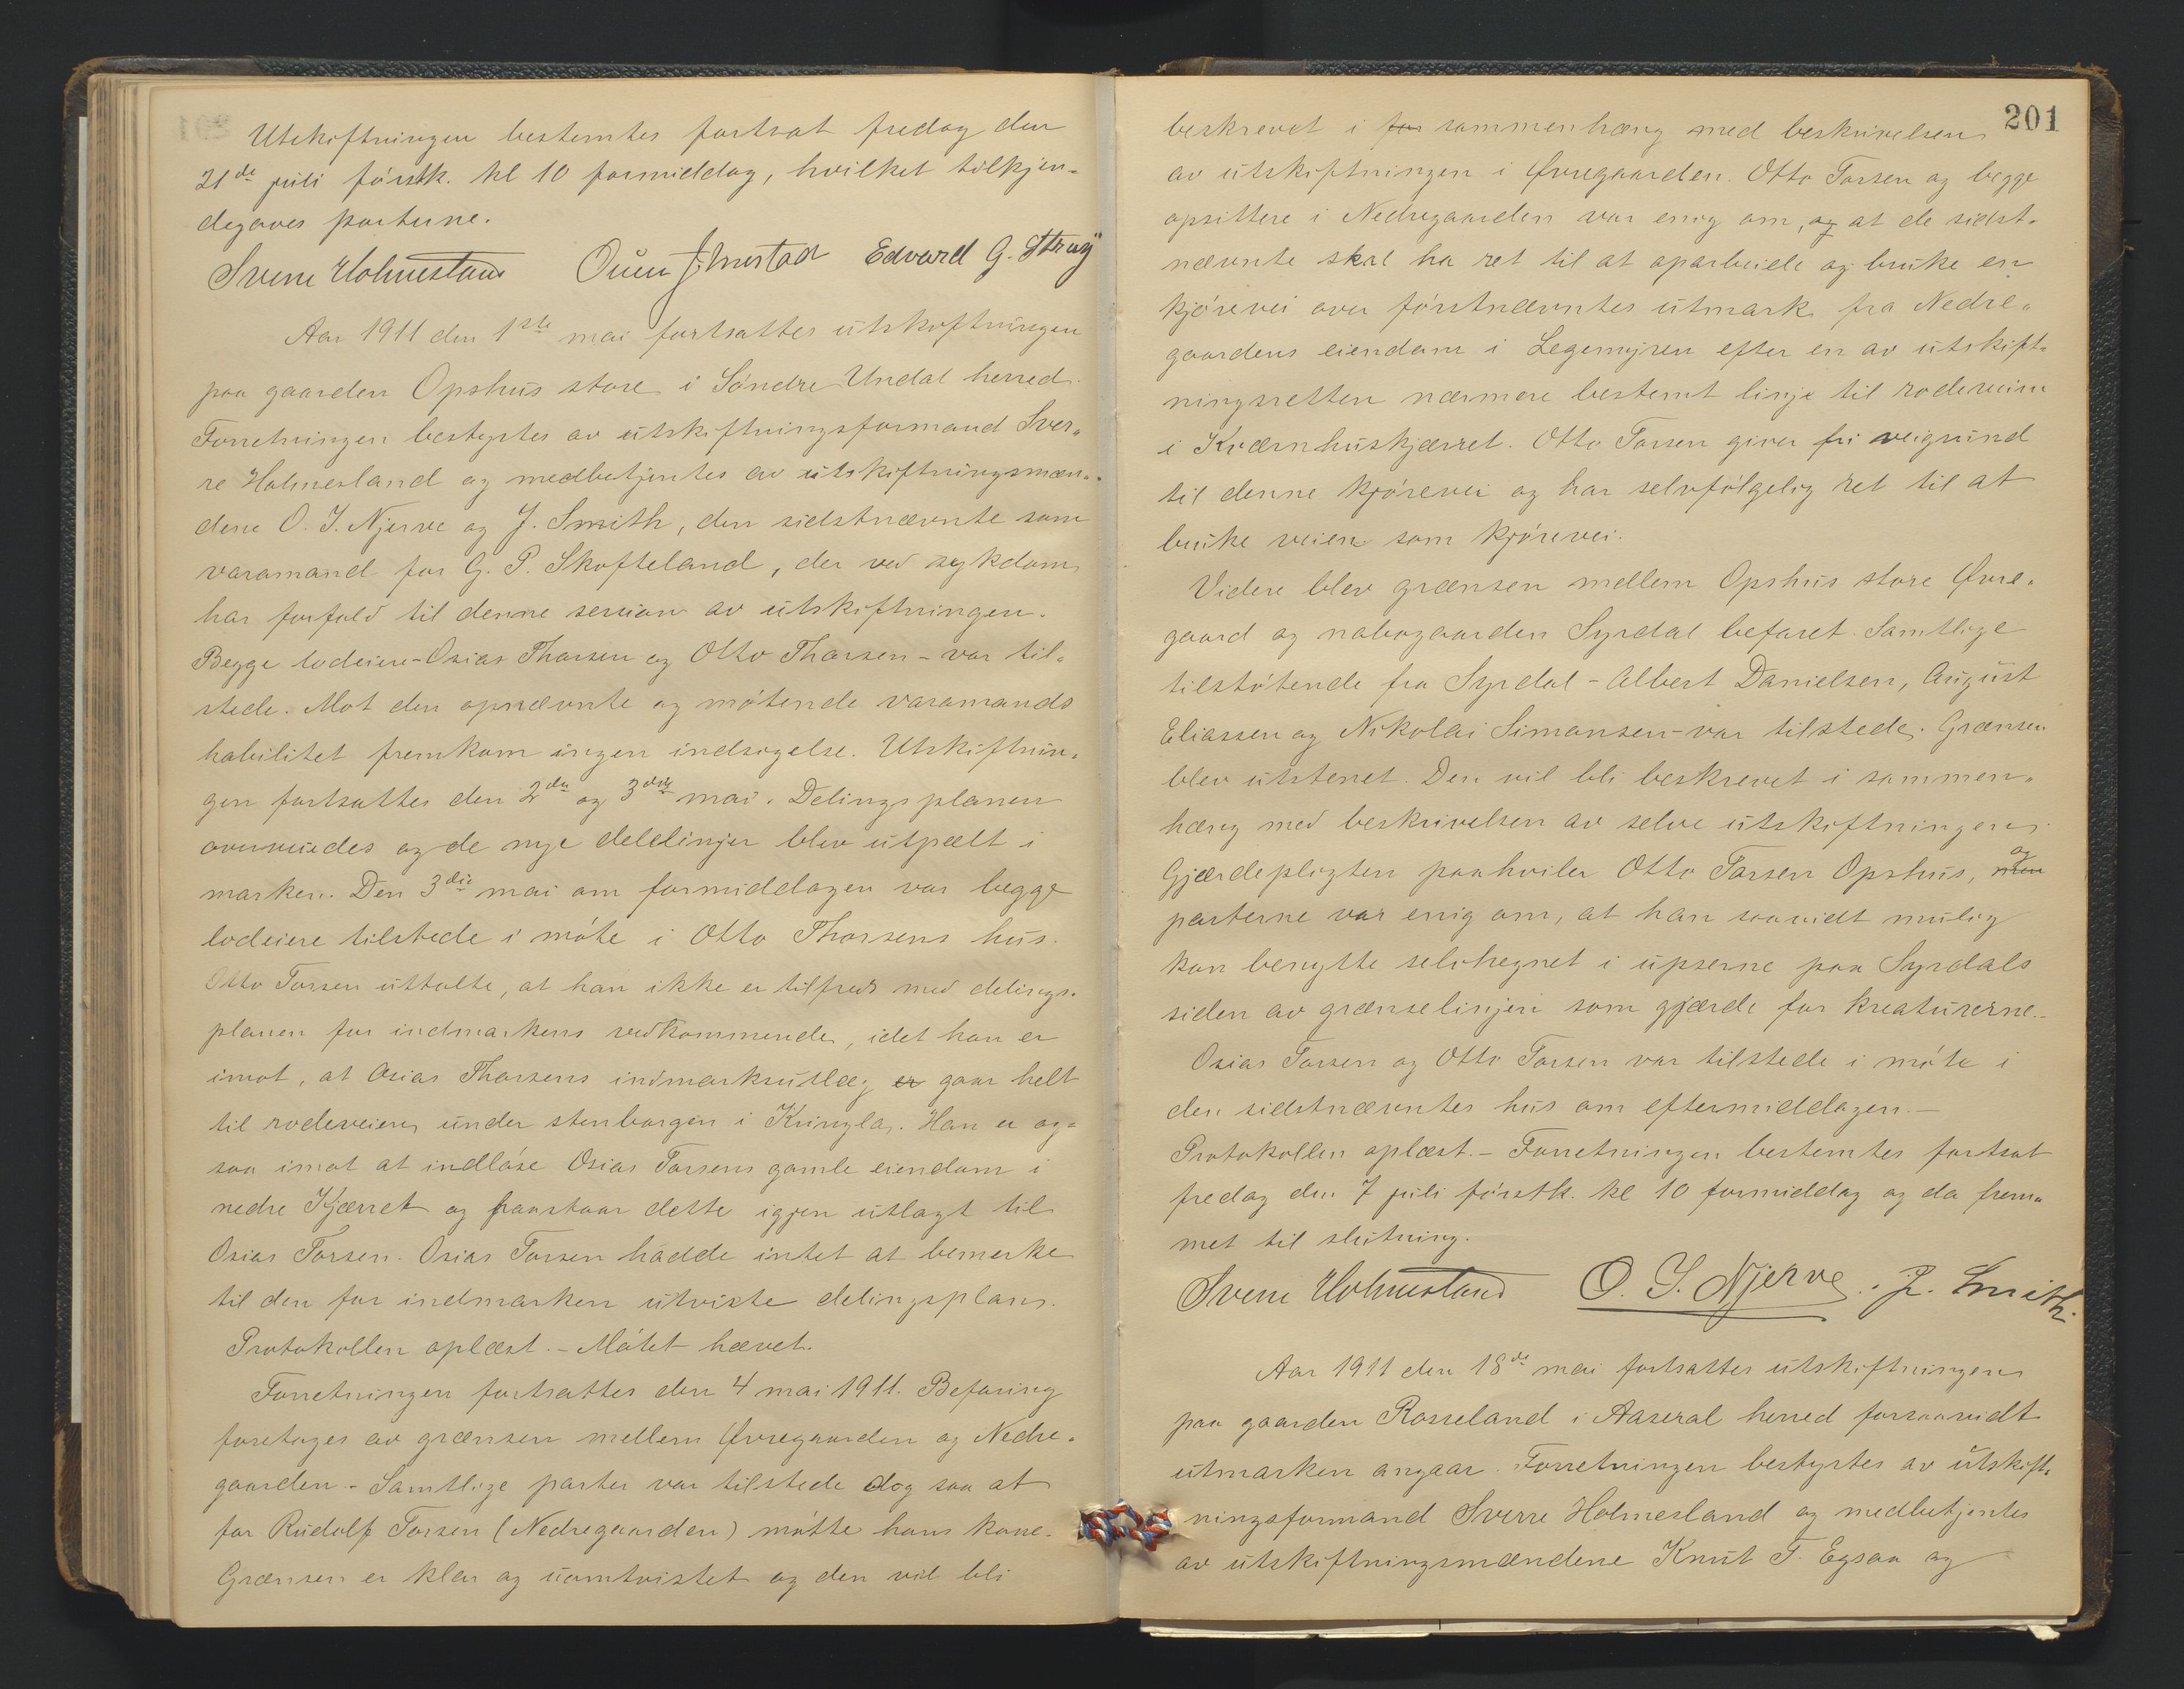 Utskiftningen bestemtes fortsat fredag den
21de juli førstk. kl 10 formiddag, hvilket tilkjen-
degaves partene.
Sverre Holmesland Edvard G. Strag
Aar 1911 den 1ste mai fortsattes utskiftningen
paa gaarden Opshus store i Søndre Undal herred.
Forretningen bestyrtes av utskiftningsformand Sver-
re Holmesland og medbetjentes av utskiftningsmæn-
dene O. S. Njerve og J. Smith, den sidstnævnte som
varamand for G. P. Skofteland, der ved sykdom
har forfald til denne session av utskiftningen.
Begge lodeiere - Osias Thorsen og Otto Thorsen - var til-
stede. Mot den opnævnte og møtende varamands
habilitet fremkom ingen indsigelse. Utskiftnin-
gen fortsattes den 2den og 3die mai. Delingsplanen
overveiedes og de nye delelinjer blev utpælt i
marken. Den 3die mai om formiddagen var begge
lodeiere tilstede i møte i Otto Thorsens hus.
Otto Torsen uttalte, at han ikke er tilfreds med delings-
planen for indmarkens vedkommende, idet han er
imot, at Osias Thorsens indmarksutlæg er gaar helt
til rodeveien under stenborgen i Kringla. Han er og-
saa imot at indløse Osias Torsens gamle eiendom i
nedre Kjærret og paastaar dette igjen utlagt til
Osias Torsen. Osias Torsen hadde intet at bemerke
til den for indmarken utviste delingsplan.
Protokollen oplæst. - Møtet hævet.
Forretningen fortsattes den 4 mai 1911. Befaring
foretages av grænsen mellem Øvregaarden og Nedre-
gaarden. - Samtlige parter var tilstede dog saa at
for Rudolf Torsen (Nedregaarden) møtte hans kone.
Grænsen er klar og uomtvistet og den vil bli
201
beskrevet i for sammenhæng med beskrivelsen
av utskiftningen i Øvregaarden. Otto Torsen og begge
opsittere i Nedregaarden var enig om, og at de sidst-
nævnte skal ha ret til at oparbeide og bruke en
kjørevei over førstnævntes utmark fra Nedre-
gaardens eiendom i Legemyren efter en av utskift-
ningsretten nærmere bestemt linje til rodeveien
i Kværnhuskjærret. Otto Torsen giver fri veigrund
til denne kjørevei og har selvfølgelig ret til at
bruke veien som kjørevei.
Videre blev grænsen mellem Opshus store Øvre-
gaard og nabogaarden Syrdal befaret. Samtlige
tilstøtende fra Syrdal - Albert Danielsen, August
Eliassen og Nikolai Simonsen - var tilstede. Grænsen
blev utstenet. Den vil bli beskrevet i sammen-
hæng med beskrivelsen av selve utskiftningen.
Gjærdepligten paahviler Otto Torsen Opshus, men og
parterne var enig om, at han saavidt mulig
kan benytte selvhegnet i upserne paa Syrdals
siden av grænselinjen som gjærde for kreaturerne.
Osias Torsen og Otto Torsen var tilstede i møte i
den sidstnævntes hus om eftermiddagen. -
Protokollen oplæst. - Forretningen bestemtes fortsat
fredag den 7 juli førstk. kl 10 formiddag og da frem-
met til slutning.
Sverre Holmesland O. S. Njerve. J. Smith.
Aar 1911 den 18de mai fortsattes utskiftningen
paa gaarden Rosseland i Aaseral herred forsaavidt
utmarken angaar. Forretningen bestyrtes av utskift-
ningsformand Sverre Holmesland og medbetjentes
av utskiftningsmændene Knut T. Egsaa og